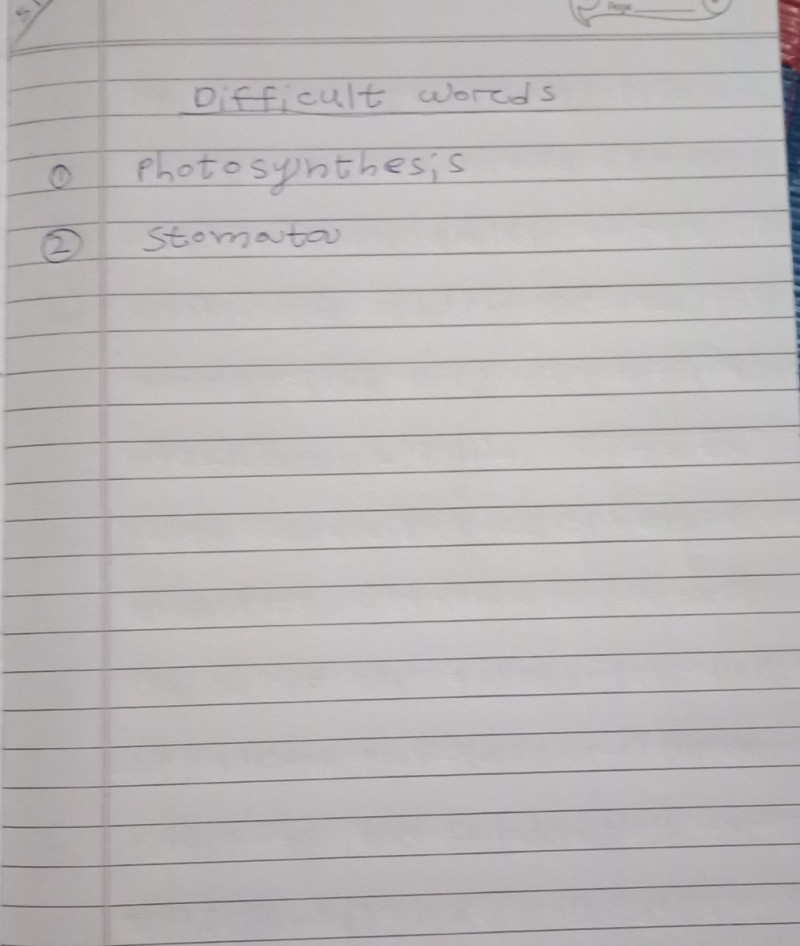 Page
Difficult words
① Photosynthesis
② Stomata